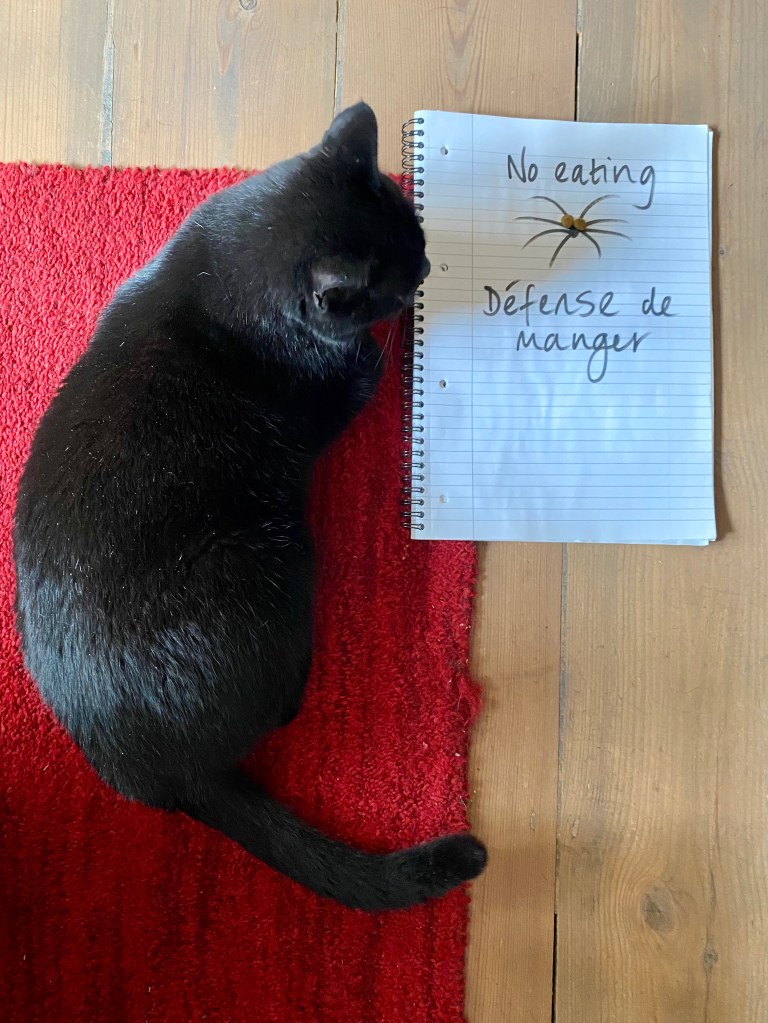 No eating
Défense de
manger